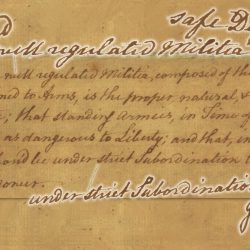 safe D
well regulated Militia
well regulated Militia, composed of th
ned to Arms, is the proper, natural, &
; that standing Armies, in Time of
as dangerous to Liberty; and that, in
hould be under strict Subordination t
under strict Subordination